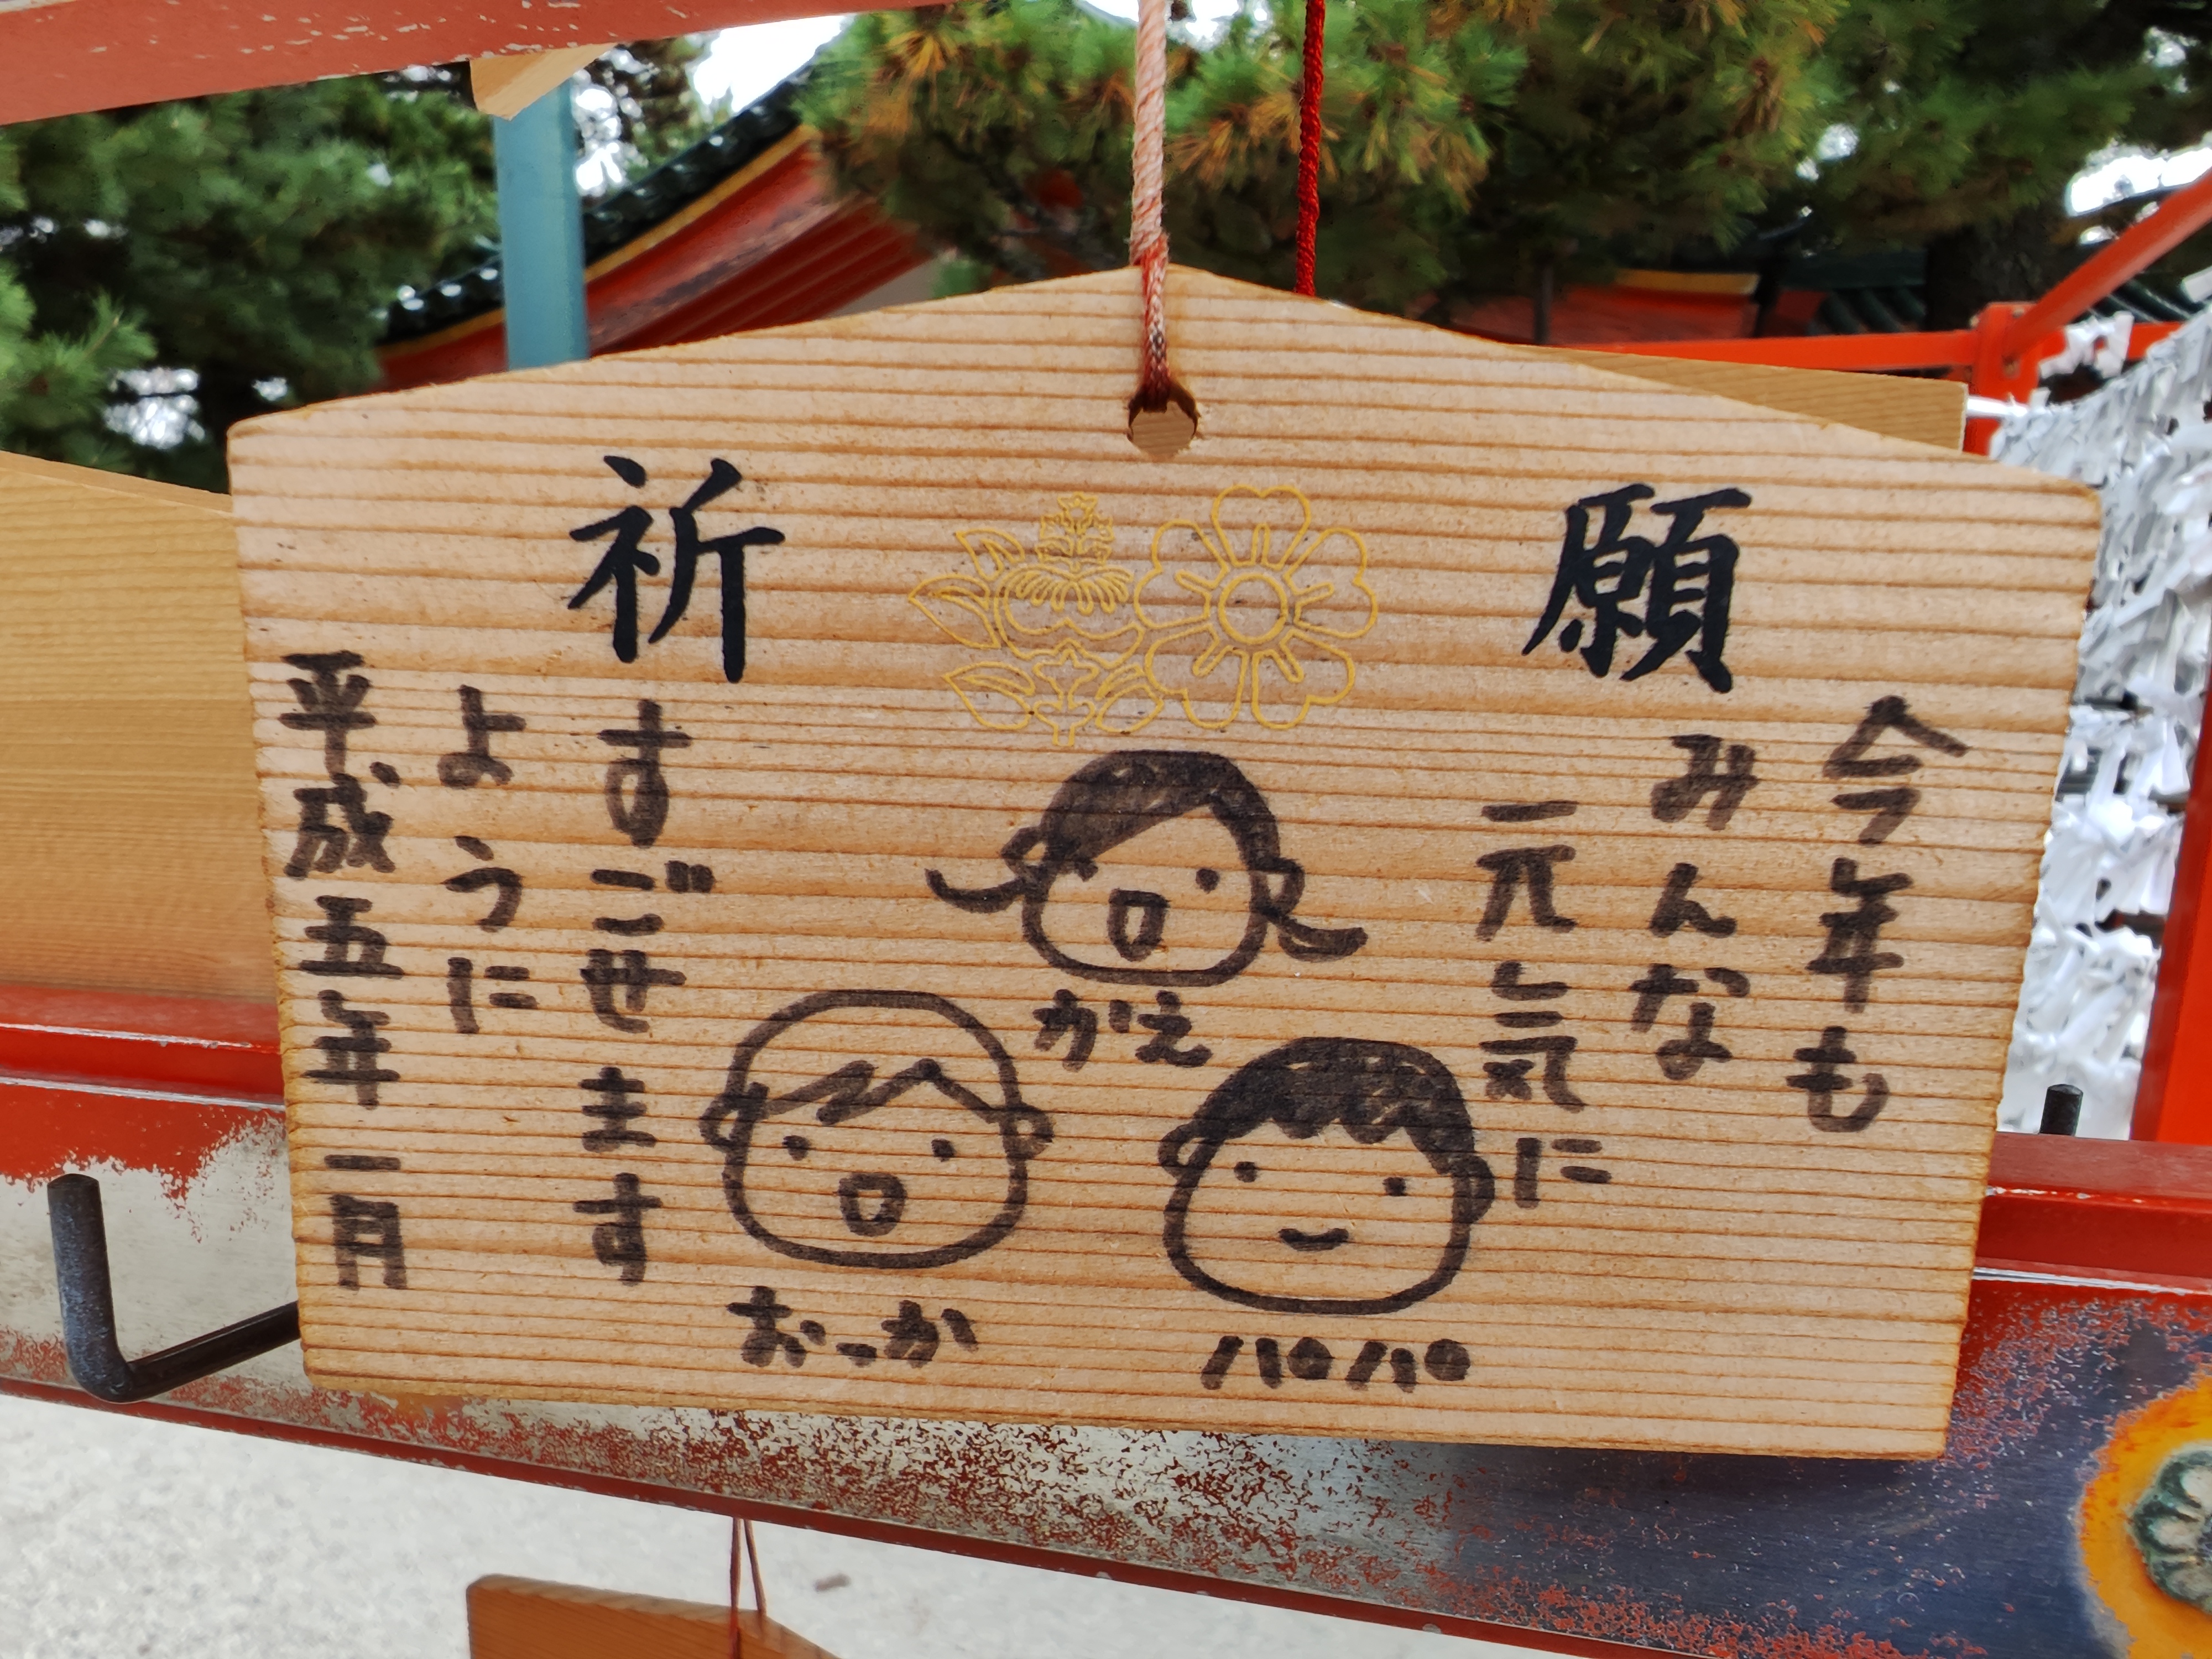 祈願
今年も
みんな
元気に
すごせます
ように
平成五年一月
かえ
おっか
パパ